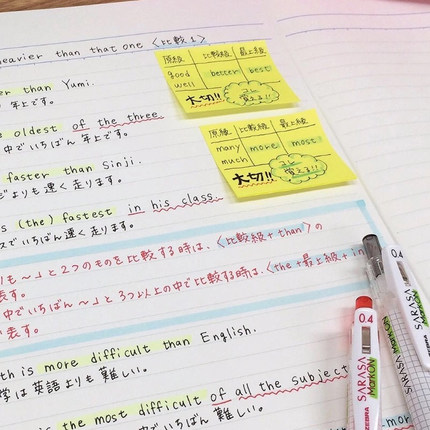 eavier than that one 〈比較1〉
er than Yumi.
年上です。
oldest of the three
中でいちばん年上です。
faster than Sinji.
よりも速く走ります。
s (the) fastest in his class.
スでいちばん速く走ります。
原級 比較級 最上級
good better best
well
大切!!
覚える!
原級 比較級 最上級
many more most
much
大切!!
覚える!
りも~」と2つのものを比較する時は、〈比較級+than〉の
表す。
中でいちばん~」と3つ以上の中で比較する時は、〈the+最上級+in
い表す。
th is more difficult than English.
学は英語よりも難しい。
is the most difficult of all the subject
でいちばん難しい。
0.4
SARASA
MARK ON
ZEBRA
0.4
SARASA
MARK ON